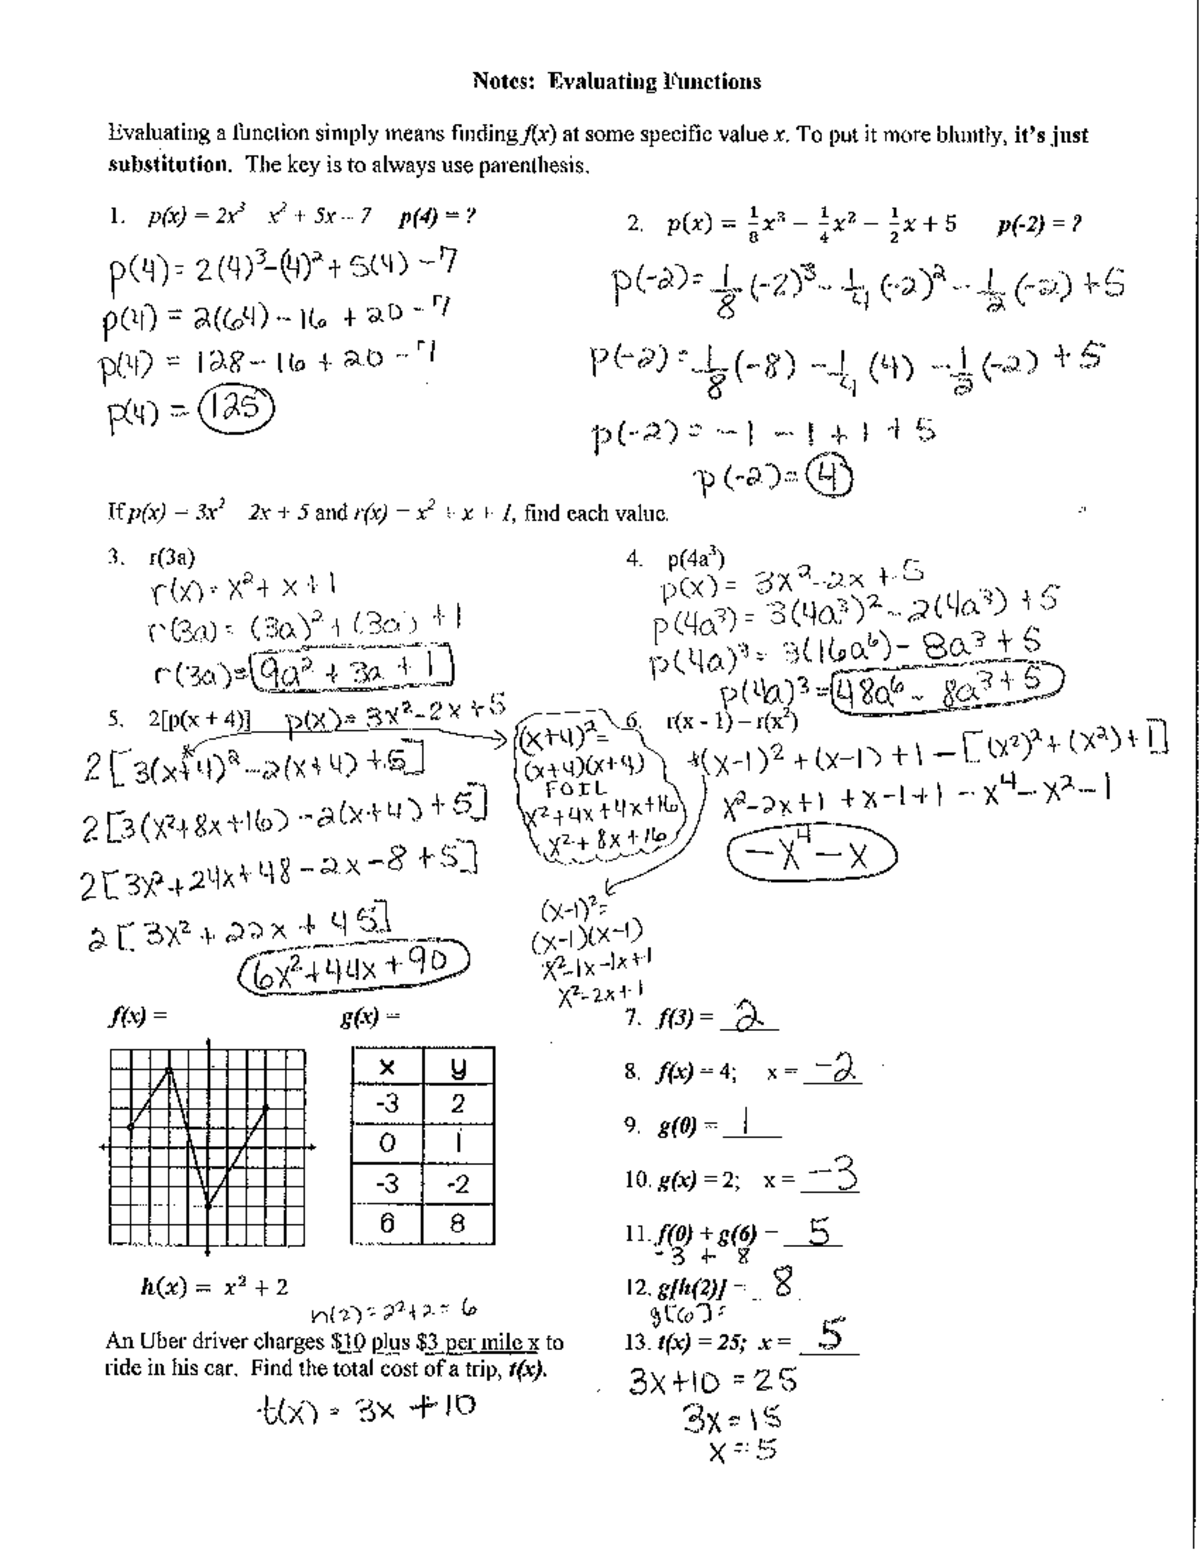 Notes: Evaluating Functions
Evaluating a function simply means finding f(x) at some specific value x. To put it more bluntly, it's just
substitution. The key is to always use parenthesis.
1. p(x) = 2x³ x² + 5x - 7 p(4) = ?
p(4) = 2(4)³-(4)²+5(4) -7
p(4) = 2(64) - 16 + 20 - 7
p(4) = 128 - 16 + 20 - 7
p(4) = 125
2. p(x) = 1/8 x³ − 1/4 x² − 1/2 x + 5 p(-2) = ?
p(-2) = 1/8 (-2)³ - 1/4 (-2)² - 1/2 (-2) + 5
p(-2) = 1/8 (-8) - 1/4 (4) - 1/2 (-2) + 5
p(-2) = -1 - 1 + 1 + 5
p(-2) = 4
If p(x) = 3x² 2x + 5 and r(x) = x² + x + 1, find each value.
3. r(3a)
r(x) = x² + x + 1
r(3a) = (3a)² + (3a) + 1
r(3a) = 9a² + 3a + 1
4. p(4a³)
p(x) = 3x² - 2x + 5
p(4a³) = 3(4a³)² - 2(4a³) + 5
p(4a)³ = 3(16a⁶) - 8a³ + 5
p(4a)³ = 48a⁶ - 8a³ + 5
5. 2[p(x + 4)] p(x) = 3x² - 2x + 5
2[3(x+4)² - 2(x+4) + 5]
2[3(x²+8x+16) - 2(x+4) + 5]
2[3x² + 24x + 48 - 2x - 8 + 5]
2[3x² + 22x + 45]
6x² + 44x + 90
(x+4)² =
(x+4)(x+4)
FOIL
x² + 4x + 4x + 16
x² + 8x + 16
6. r(x - 1) – r(x²)
+(x-1)² + (x-1) + 1 - [(x²)² + (x²) + 1]
x² - 2x + 1 + x - 1 + 1 - x⁴ - x² - 1
-x⁴ - x
(x-1)² =
(x-1)(x-1)
x² - 1x - 1x + 1
x² - 2x + 1
f(x) =
g(x) =
x y
-3 2
0 1
-3 -2
6 8
h(x) = x² + 2
h(2) = 2² + 2 = 6
An Uber driver charges $10 plus $3 per mile x to
ride in his car. Find the total cost of a trip, t(x).
t(x) = 3x + 10
7. f(3) = 2
8. f(x) = 4; x = -2
9. g(0) = 1
10. g(x) = 2; x = -3
11. f(0) + g(6) = 5
-3 + 8
12. g[h(2)] = 8
g[6] =
13. t(x) = 25; x = 5
3x + 10 = 25
3x = 15
x = 5